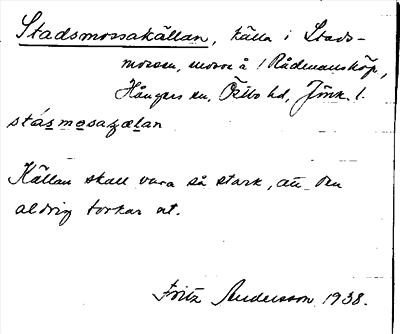 Stadsmossakällan, källa i Stads-
mossen, mosse å 1 Rådmansköp,
Hångers sn, Östbo hd, Jönk. l.
stásmosaɕælan
Källan skall vara så stark, att den
aldrig torkar ut.
Fritz Andersson 1938.